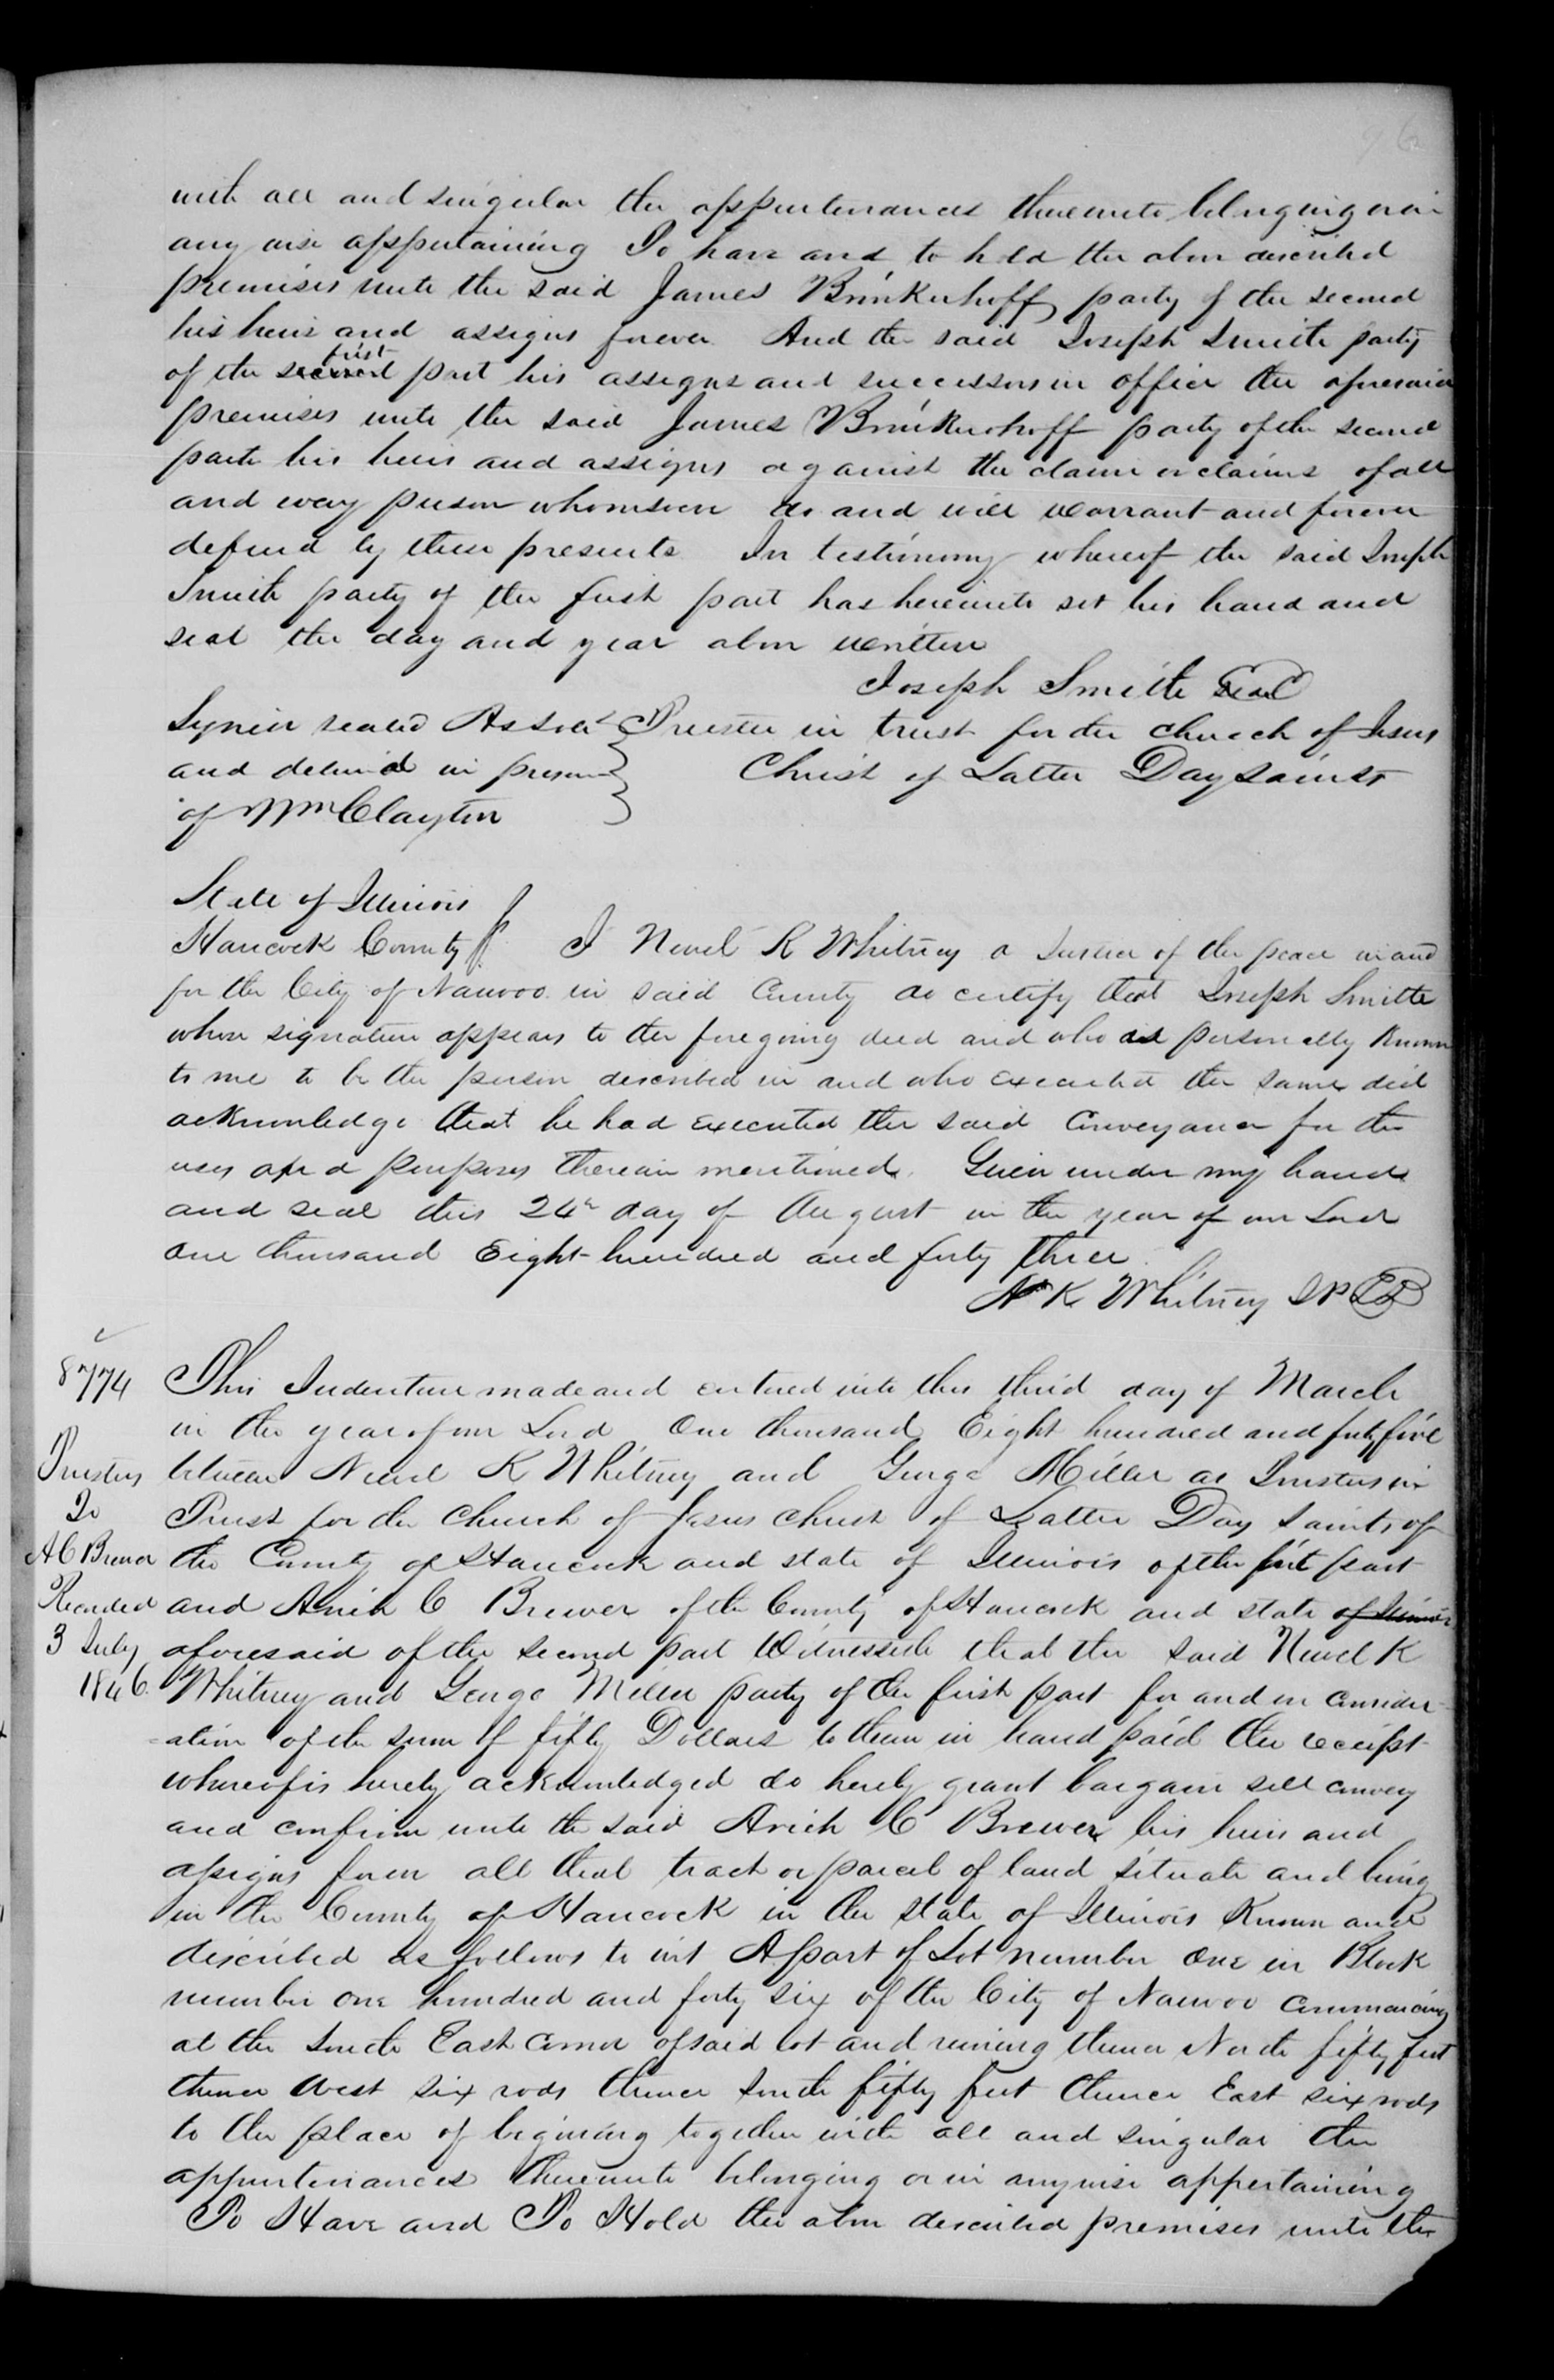 with all and singular the appurtenances thereunto belonging or in
any wise appertaining To have and to hold the above described
premises unto the said James Brinkerhoff party of the second
his heirs and assigns forever And the said Joseph Smith party
of the second first part his assigns and successors in office the aforesaid
premises unto the said James Brinkerhoff party of the second
parte his heirs and assigns against the claim or claims of all
and every person whomsoever do and will warrant and forever
defend by these presents In testimony whereof the said Joseph
Smith party of the first part has hereunto set his hand and
seal the day and year above written
Joseph Smith Seal
Signed sealed
Trustee in trust for the church of Jesus
and deliverd in presence
Christ of Latter Day Saints
of Wm Clayton
State of Illinois
Hancock County I Newel K Whitney a Justice of the peace in and
for the City of Nauvoo in said County do certify that Joseph Smith
whose signature appears to the foregoing deed and who is personally known
to me to be the person described in and who executed the same did
acknowledge that he had executed the said Conveyance for the
uses and purposes therein mentioned. Given under my hand
and seal this 24th day of August in the year of our Lord
one thousand Eight hundred and forty three
N K Whitney JP LS
8774
Trustees
To
A C Brewer
Recorded
3 July
1846.
This Indenture made and entered into this third day of March
in the year of our Lord One thousand Eight hundred and forty five
between Newel K Whitney and George Miller as Trustees in
Trust for the Church of Jesus Christ of Latter Day Saints of
the County of Hancock and state of Illinois of the first part
and Arich C Brewer of the County of Hancock and state of Illinois
aforesaid of the second part Witnesseth that the said Newel K
Whitney and George Miller party of the first part for and in consider-
=ation of the sum of fifty Dollars to them in hand paid the receipt
whereof is hereby acknowledged do hereby grant bargain sell convey
and confirm unto the said Arich C Brewer his heirs and
assigns forever all that tract or parcel of land situate and being
in the County of Hancock in the state of Illinois Known and
described as follows to wit A part of Lot number One in Block
number one hundred and forty six of the City of Nauvoo commencing
at the South East corner of said lot and runing thence North fifty feet
thence West six rods thence South fifty feet thence East six rods
to the place of begining together with all and singular the
appurtenances thereunto belonging or in anywise appertaining
To Have and To Hold the above described premises unto the